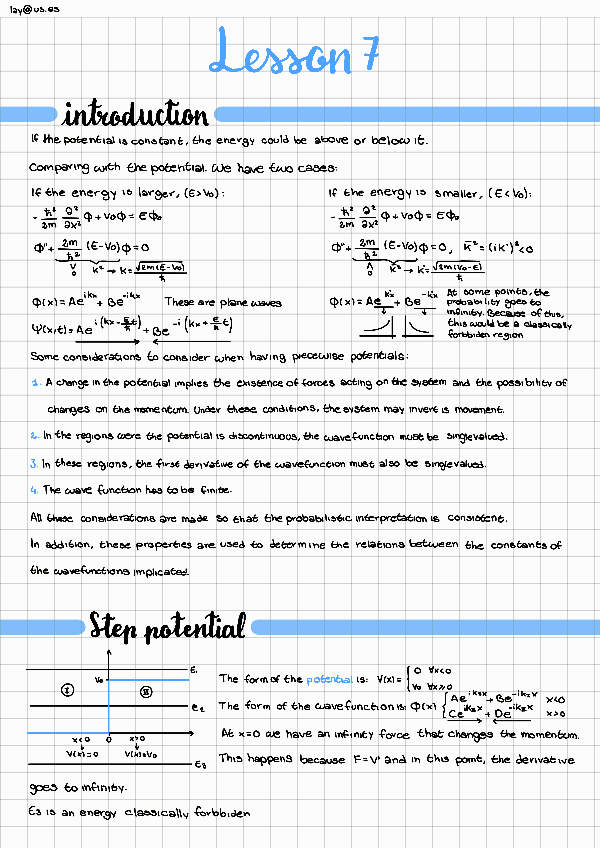 lay@us.es
Lesson 7
introduction
If the potential is constant, the energy could be above or below it.
Comparing with the potential. We have two cases:
If the energy is larger, (E>V₀):
- ħ²/2m ∂²/∂x² Φ + V₀Φ = EΦ₀
Φ'' + 2m/ħ² (E-V₀)Φ = 0
V
0
k² → k = √2m(E-V₀)/ħ
Φ(x) = Ae^ikx + Be^-ikx These are plane waves
Ψ(x,t) = Ae^i(kx - E/ħ t) + Be^-i(kx + E/ħ t)
If the energy is smaller, (E<V₀):
- ħ²/2m ∂²/∂x² Φ + V₀Φ = EΦ₀
Φ'' + 2m/ħ² (E-V₀)Φ = 0, k² = (ik')² < 0
Λ
0
k² → k = √2m(V₀-E)/ħ
Φ(x) = Ae^k'x + Be^-k'x
At some points, the
probability goes to
infinity. Because of this,
this would be a classically
forbbiden region
Some considerations to consider when having piecewise potentials:
1. A change in the potential implies the existence of forces acting on the system and the possibility of
changes on the momentum. Under these conditions, the system may invert is movement.
2. In the regions were the potential is discontinuous, the wavefunction must be singlevalued.
3. In these regions, the first derivative of the wavefunction must also be singlevalued.
4. The wave function has to be finite.
All these considerations are made so that the probabilistic interpretation is consistent.
In addition, these properties are used to determine the relations between the constants of
the wavefunctions implicated.
Step potential
E₁
V₀
I
II
E₂
x<0 0 x>0
V(x)=0 V(x)=V₀
E₃
The form of the potential is: V(x) = { 0 ∀x<0
V₀ ∀x≥0
The form of the wavefunction is: Φ(x) { Ae^ik₁x + Be^-ik₁x x<0
Ce^ik₂x + De^-ik₂x x>0
At x=0 we have an infinity force that changes the momentum.
This happens because F=V' and in this point, the derivative
goes to infinity.
E₃ is an energy classically forbbiden